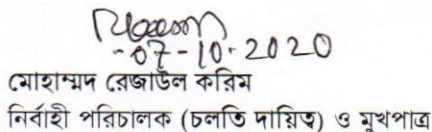 -07-10-2020
মোহাম্মদ রেজাউল করিম
নির্বাহী পরিচালক (চলতি দায়িত্ব) ও মুখপাত্র